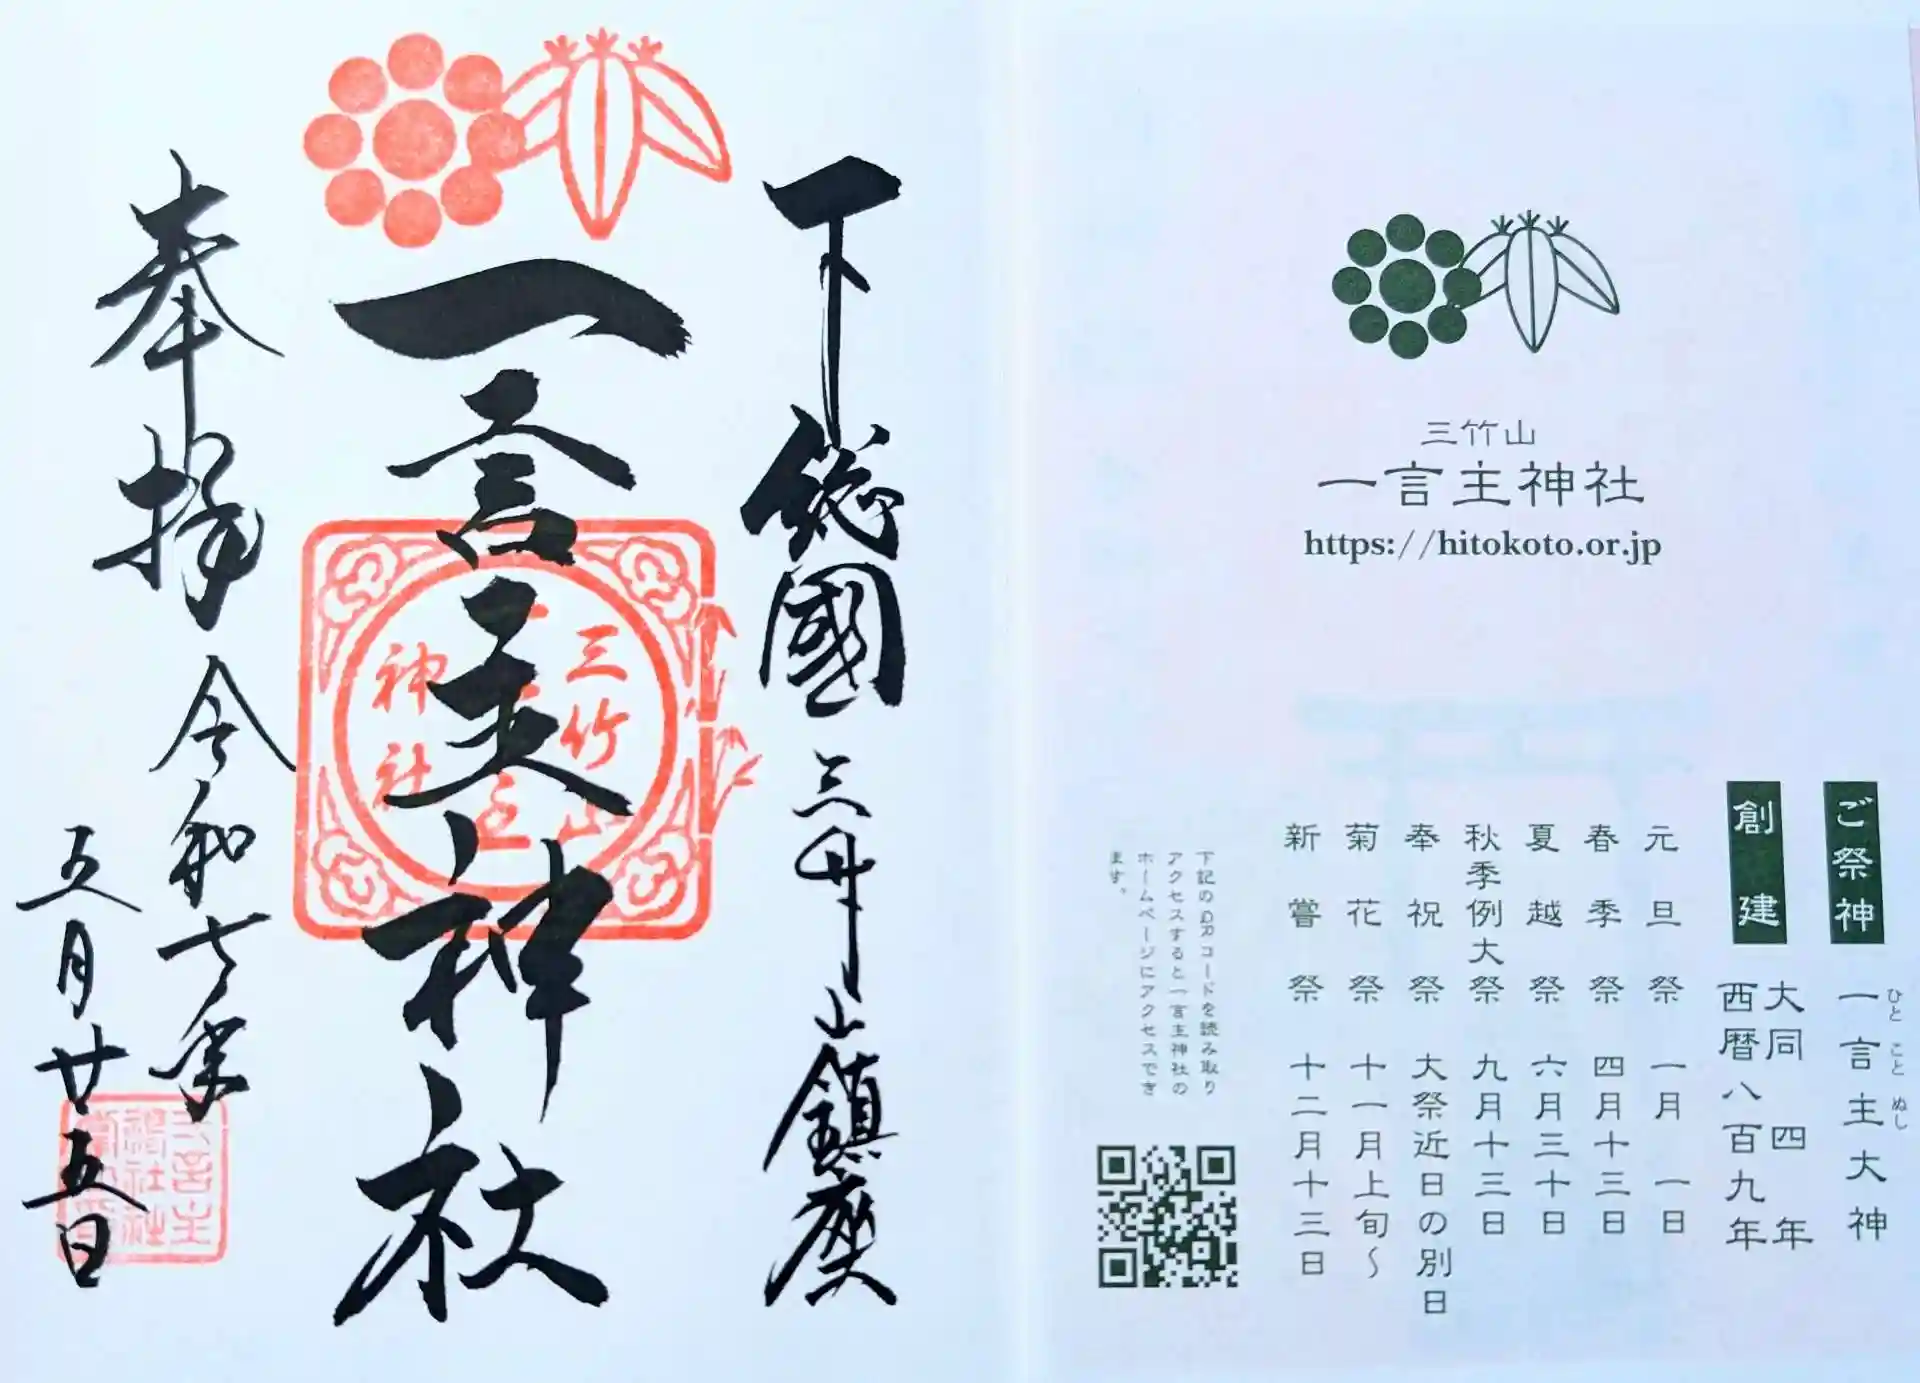 下総國三竹山鎮座
一言主神社
三竹山
神社
奉拝
令和七年
五月廿五日
三竹山
一言主神社
https://hitokoto.or.jp
ご祭神
一言主大神
ひと こと ぬし
創建
大同四年
西暦八百九年
元旦祭 一月一日
春季祭 四月十三日
夏越祭 六月三十日
秋季例大祭 九月十三日
奉祝祭 大祭近日の別日
菊花祭 十一月上旬〜
新嘗祭 十二月十三日
下記のQRコードを読み取り
アクセスすると一言主神社の
ホームページにアクセスでき
ます。